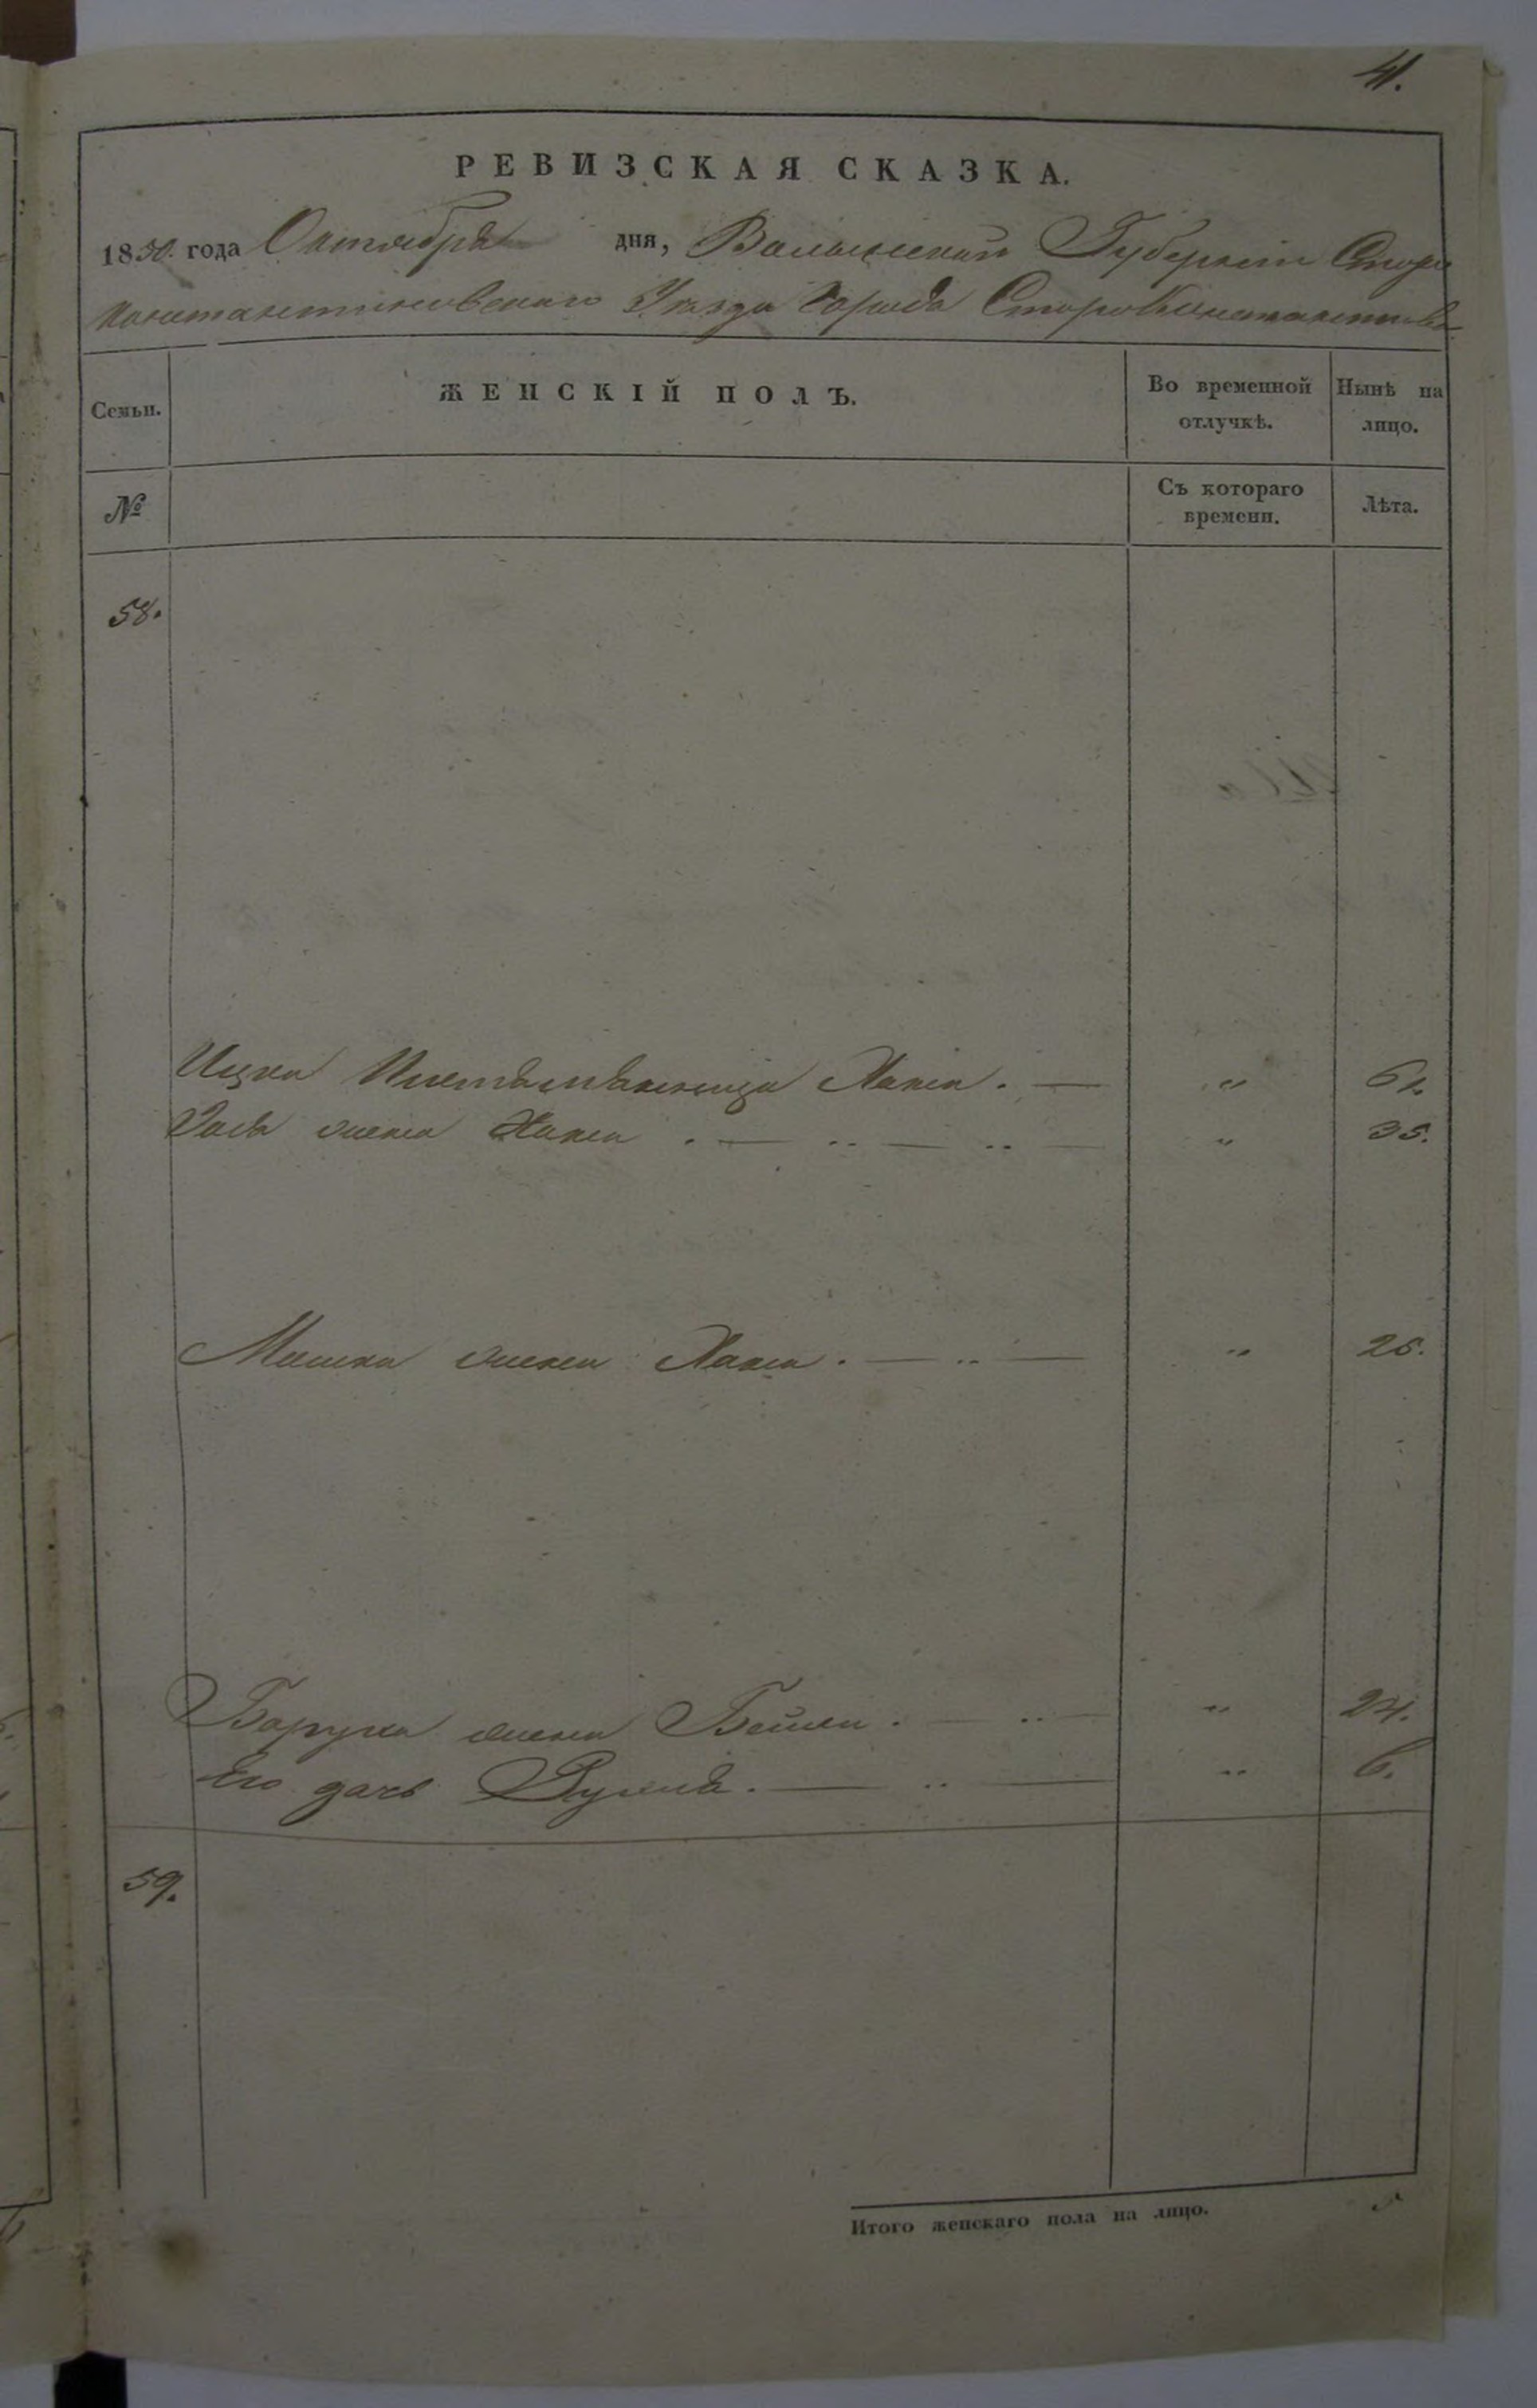 41.
РЕВИЗСКАЯ СКАЗКА.
1850. года Октября дня, Волынской Губернии Старо
константиновскаго Уезда города Староконстантинова
Семьи.
ЖЕНСКІЙ ПОЛЪ.
Во временной отлучкѣ.
Нынѣ на лицо.
№
Съ котораго времени.
Лѣта.
58.
Ицка Хаия. — " 61.
жена Хания . — .. — .. — " 35.
жена Хания . — .. — " 26.
Боруха жена Бейля . — .. — " 24.
Его дочь — .. — " 6.
59.
Итого женскаго пола на лицо. 5